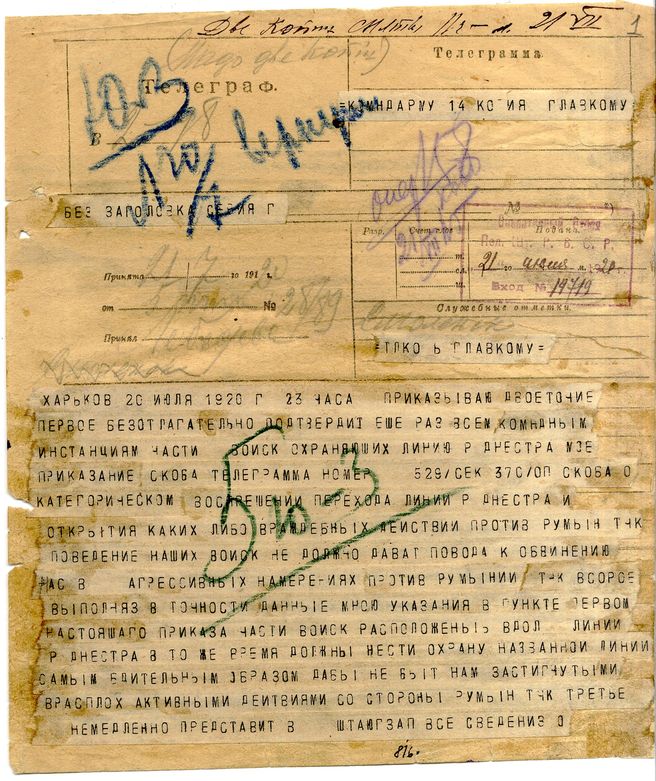 Две копии
21 VII
1
Телеграф.
Телеграмма.
=КОМАНДАРМУ 14 КОПИЯ ГЛАВКОМУ
В
БЕЗ ЗАГОЛОВКА СЕРИЯ Г
№
Разр.
Счет слов
Подана.
Пол. Шт. Р. В. С. Р.
21 го июля м. 1920 г.
Вход № 14719
Принята 21 7 го 191 г.
от № 28/09
Принял
Служебные отметки.
=ТЛКО Ь ГЛАВКОМУ=
ХАРЬКОВ 20 ИЮЛЯ 1920 Г 23 ЧАСА ПРИКАЗЫВАЮ ДВОЕТОЧИЕ
ПЕРВОЕ БЕЗОТЛАГАТЕЛЬНО ПОДТВЕРДИТ ЕШЕ РАЗ ВСЕМ КОМАНДНЫМ
ИНСТАНЦИЯМ ЧАСТИ ВОИСК ОХРАНЯЮШИХ ЛИНИЮ Р ДНЕСТРА МОЕ
ПРИКАЗАНИЕ СКОБА ТЕЛЕГРАММА НОМЕР 529/СЕК 370/ОП СКОБА О
КАТЕГОРИЧЕСКОМ ВОСПРЕШЕНИИ ПЕРЕХОДА ЛИНИИ Р ДНЕСТРА И
ОТКРЫТИЯ КАКИХ ЛИБО ВРАЖДЕБНЫХ ДЕЙСТВИИ ПРОТИВ РУМЫН ТЧК
ПОВЕДЕНИЕ НАШИХ ВОИСК НЕ ДОЛЖНО ДАВАТ ПОВОДА К ОБВИНЕНИЮ
НАС В АГРЕССИВНЫХ НАМЕРЕНИЯХ ПРОТИВ РУМЫНИИ ТЧК ВТОРОЕ
ВЫПОЛНЯЗ В ТОЧНОСТИ ДАННЫЕ МНОЮ УКАЗАНИЯ В ПУНКТЕ ПЕРВОМ
НАСТОЯШАГО ПРИКАЗА ЧАСТИ ВОИСК РАСПОЛОЖЕНЫЬ ВДОЛ ЛИНИИ
Р ДНЕСТРА В ТО ЖЕ ВРЕМЯ ДОЛЖНЫ НЕСТИ ОХРАНУ НАЗВАННОЙ ЛИНИИ
САМЫМ БДИТЕЛЬНЫМ ОБРАЗОМ ДАБЫ НЕ БЫТ НАМ ЗАСТИГНУТЫМИ
ВРАСПЛОХ АКТИВНЫМИ ДЕИТВИЯМИ СО СТОРОНЫ РУМЫН ТЧК ТРЕТЬЕ
НЕМЕДЛЕННО ПРЕДСТАВИТ В ШТАЮГЗАП ВСЕ СВЕДЕНИЗ О
816.